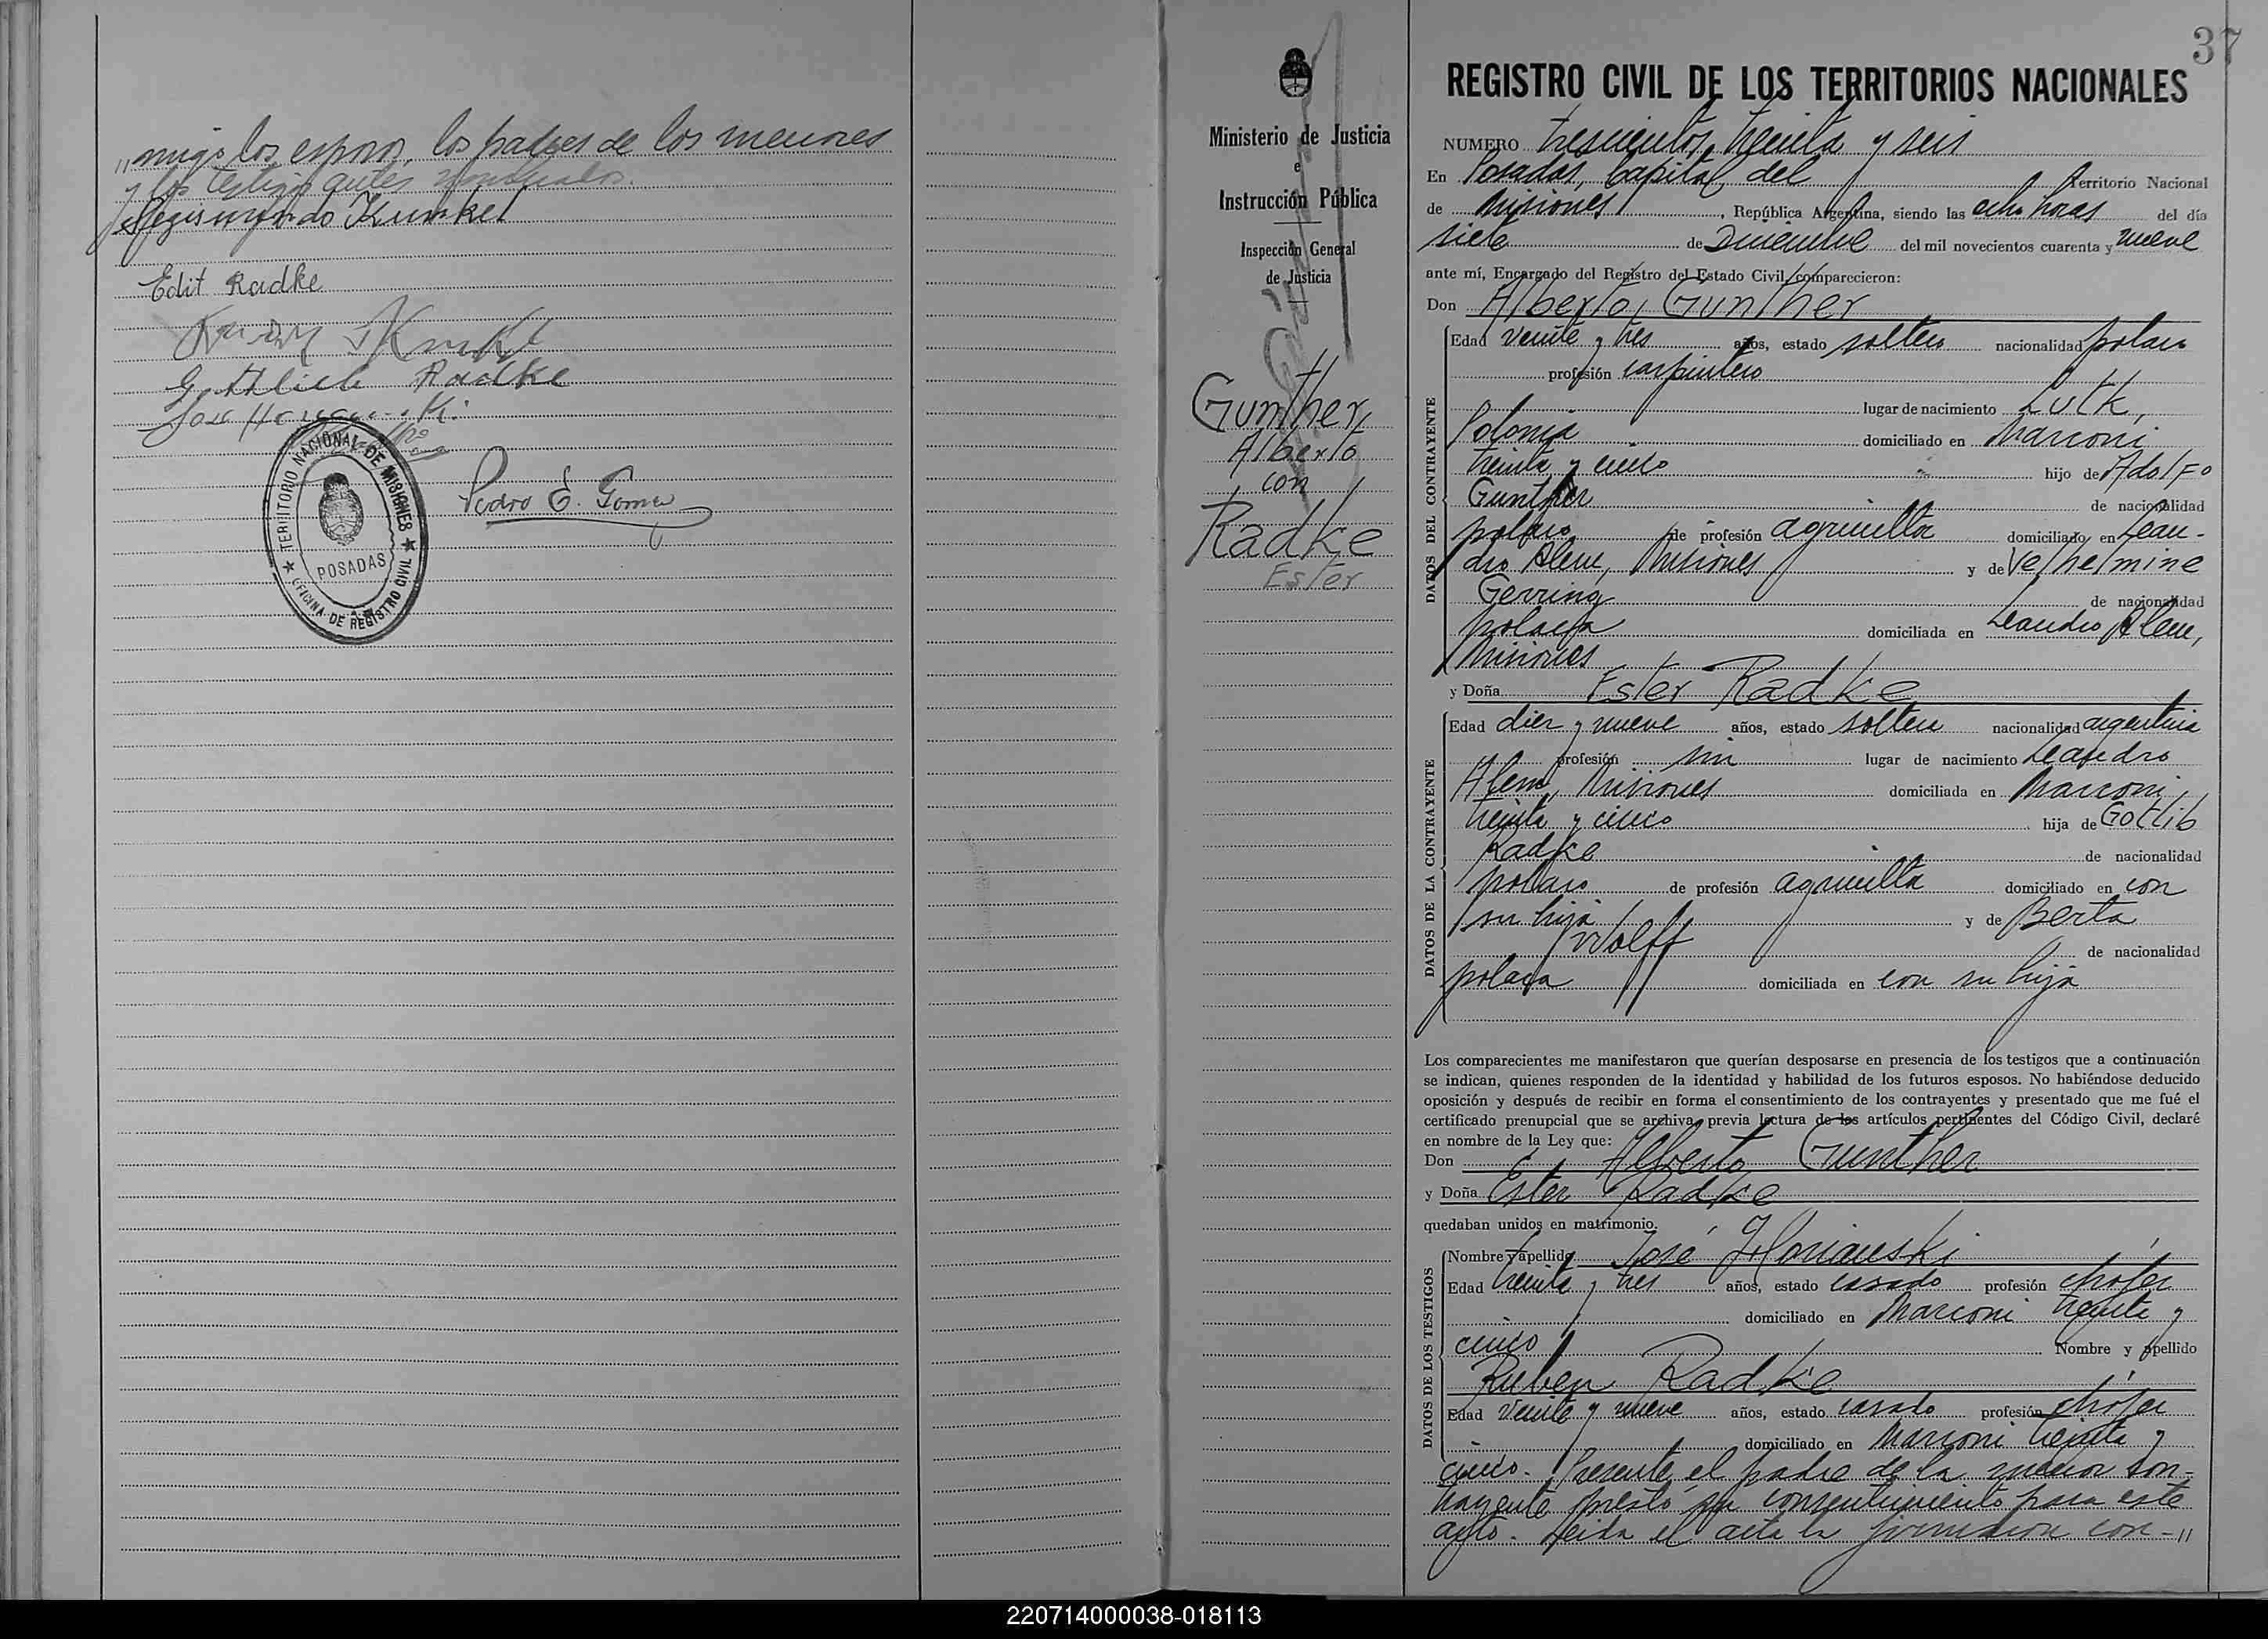 „migo los esposos, los padres de los menores
y los testigos antes nombrados.
Segismundo Kunkel
Edit Radke
Gottlieb Radke
TERRITORIO NACIONAL DE MISIONES
POSADAS
OFICINA DE REGISTRO CIVIL
Pedro E. Gomez
Ministerio de Justicia
e
Instrucción Pública
Inspección General
de Justicia
Gunther
Alberto
con
Radke
Ester
37
REGISTRO CIVIL DE LOS TERRITORIOS NACIONALES
NUMERO trescientos treinta y seis
En Posadas, Capital del Territorio Nacional
de Misiones, República Argentina, siendo las ocho horas del día
siete de Diciembre del mil novecientos cuarenta y nueve
ante mí, Encargado del Registro del Estado Civil, comparecieron:
Don Alberto Gunther
DATOS DEL CONTRAYENTE
Edad veinte y tres años, estado soltero nacionalidad polaco
profesión carpintero
lugar de nacimiento Lutk,
Polonia domiciliado en Marconi
treinta y cinco hijo de Adolfo
Gunther de nacionalidad
polaco de profesión agricultor domiciliado en Lean-
dro Alem, Misiones y de Velhelmine
Gerring de nacionalidad
polaca domiciliada en Leandro Alem,
Misiones
y Doña Ester Radke
DATOS DE LA CONTRAYENTE
Edad diez y nueve años, estado soltera nacionalidad argentina
profesión sin lugar de nacimiento Leandro
Alem, Misiones domiciliada en Marconi
treinta y cinco hija de Gotlib
Radke de nacionalidad
polaco de profesión agricultor domiciliado en con
su hija y de Berta
Wolff de nacionalidad
polaca domiciliada en con su hija
Los comparecientes me manifestaron que querían desposarse en presencia de los testigos que a continuación
se indican, quienes responden de la identidad y habilidad de los futuros esposos. No habiéndose deducido
oposición y después de recibir en forma el consentimiento de los contrayentes y presentado que me fué el
certificado prenupcial que se archiva, previa lectura de los artículos pertinentes del Código Civil, declaré
en nombre de la Ley que:
Don Alberto Gunther
y Doña Ester Radke
quedaban unidos en matrimonio.
DATOS DE LOS TESTIGOS
Nombre y apellido José
Edad treinta y tres años, estado casado profesión chofer
domiciliado en Marconi treinta y
cinco Nombre y apellido
Ruben Radke
Edad veinte y nueve años, estado casado profesión chofer
domiciliado en Marconi treinta y
cinco. Presente el padre de la menor con-
trayente prestó su consentimiento para este
acto. Leida el acta la firmaron con-„
220714000038-018113